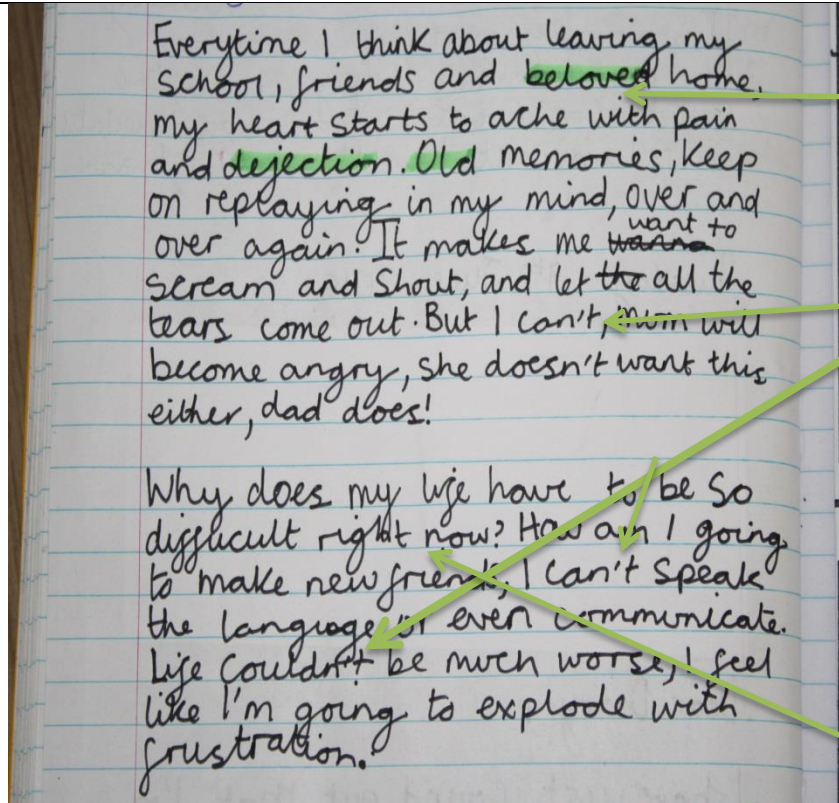 Everytime I think about leaving my
school, friends and beloved home,
my heart starts to ache with pain
and dejection. Old memories, keep
on replaying in my mind, over and
over again. It makes me wanna want to
scream and shout, and let the all the
tears come out. But I can't, mom will
become angry, she doesn't want this
either, dad does!
Why does my life have to be so
difficult right now? How am I going
to make new friends, I can't speak
the language or even communicate.
Life couldn't be much worse, I feel
like I'm going to explode with
frustration.